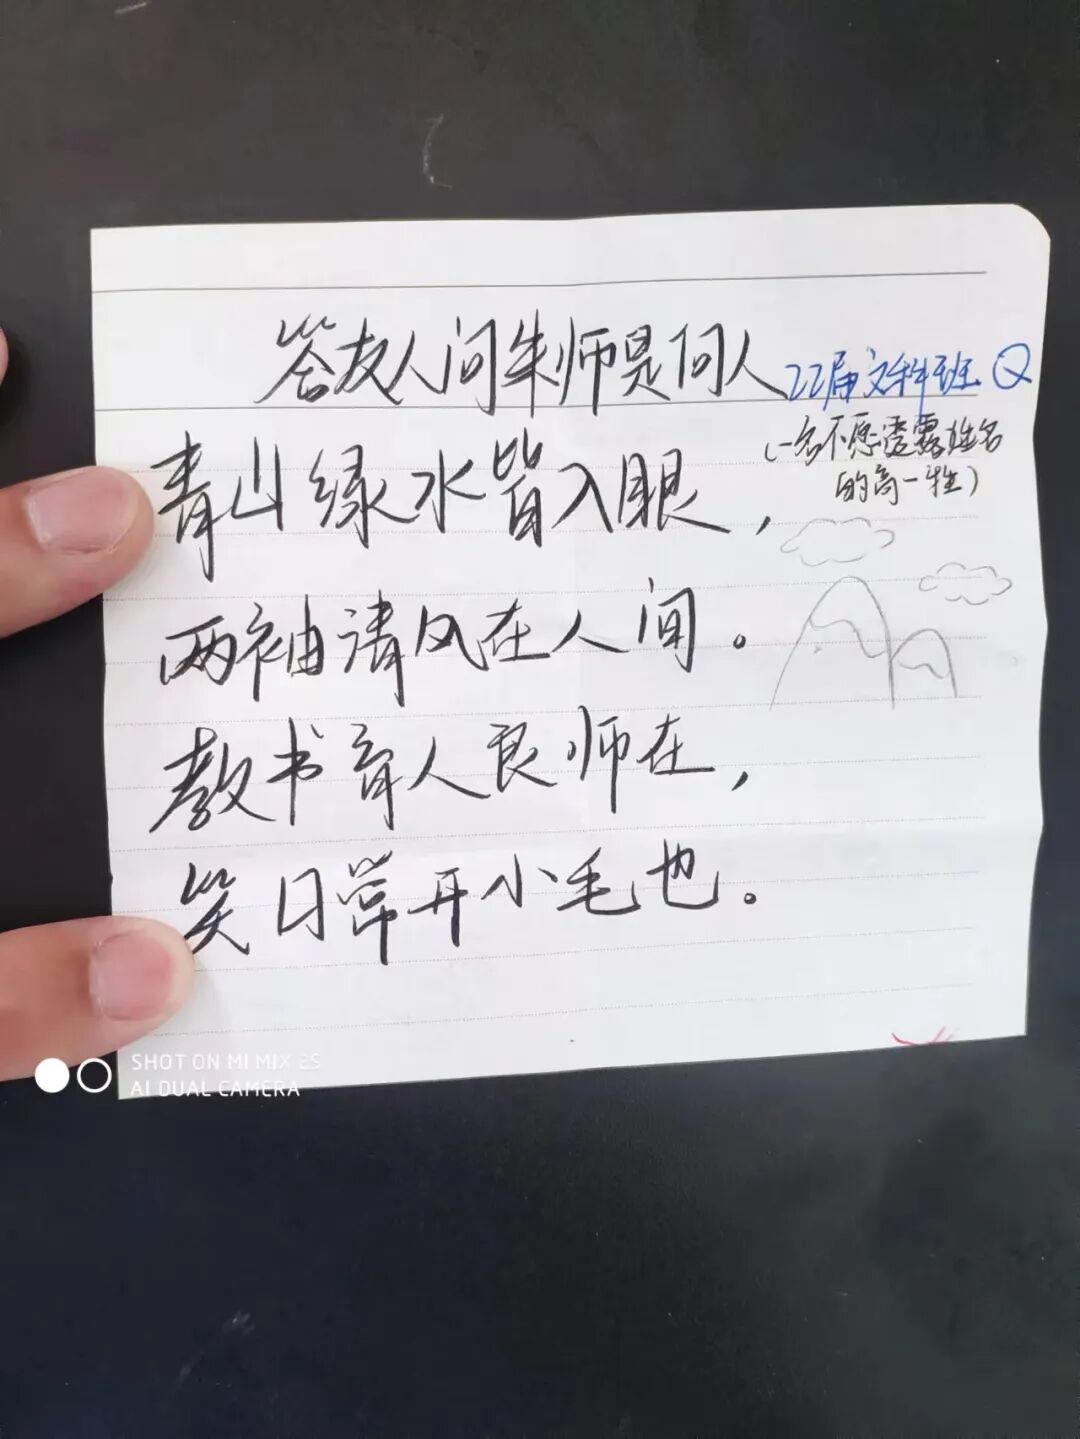 答友人问朱师是何人
22届文科班 Q
(一名不愿透露姓名
的高一牲)
青山绿水皆入眼，
两袖清风在人间。
教书育人良师在，
笑口常开小毛也。
SHOT ON MI MIX 2S
AI DUAL CAMERA